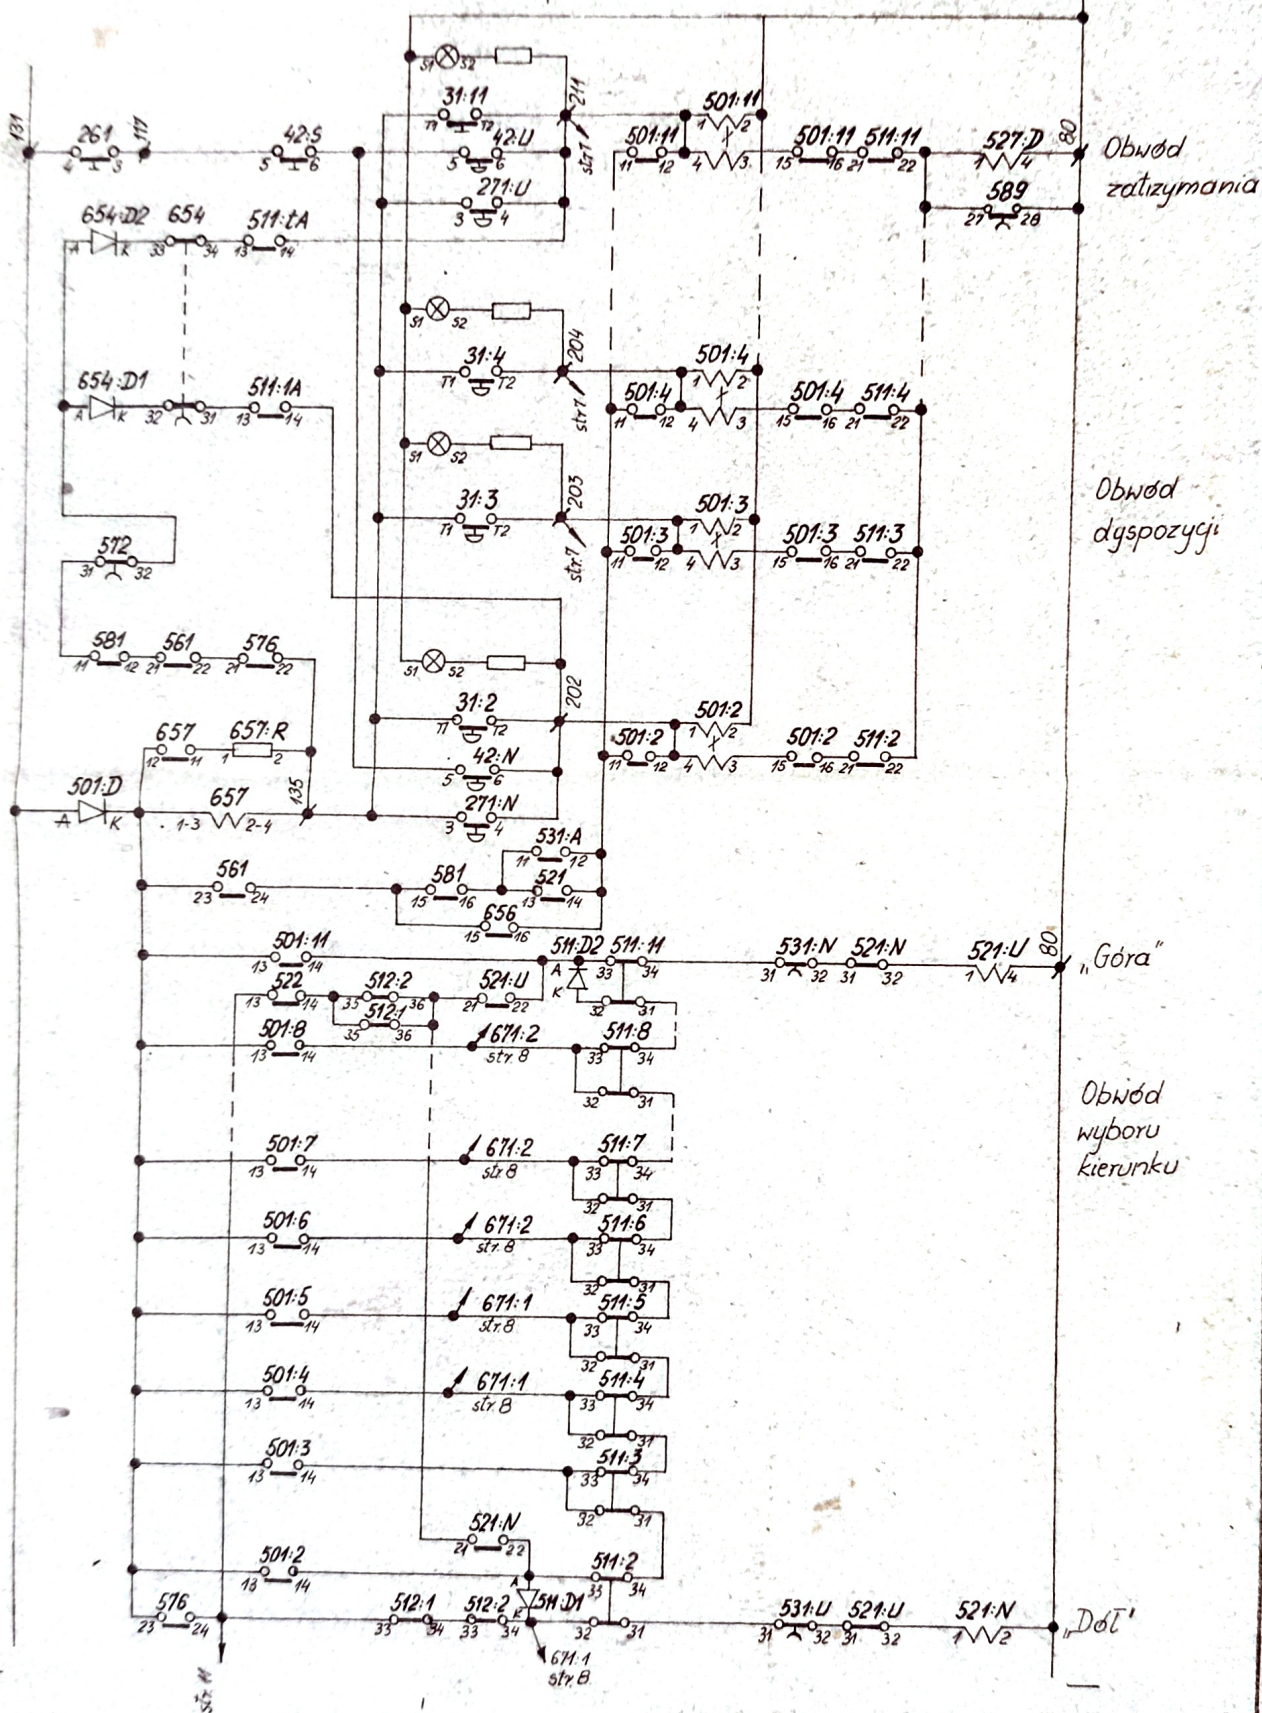 131
261
4 5
117
42:S
5 6
S1 S2
31:11
T1 T2
42:U
5 6
271:U
3 4
211
str 7
501:11
11 12
501:11
1 2
4 3
501:11
15 16
511:11
21 22
527:D
1 4
80
589
27 28
Obwód
zatrzymania
654:D2
A K
654
33 34
511:tA
13 14
S1 S2
204
31:4
T1 T2
str 7
501:4
1 2
501:4
11 12
4 3
501:4
15 16
511:4
21 22
654:D1
A K
32 31
511:1A
13 14
S1 S2
203
31:3
T1 T2
str 7
501:3
1 2
501:3
11 12
4 3
501:3
15 16
511:3
21 22
Obwód
dyspozycji
572
31 32
581
11 12
561
21 22
576
21 22
S1 S2
202
31:2
T1 T2
501:2
1 2
501:2
11 12
4 3
501:2
15 16
511:2
21 22
657
12 11
657:R
1 2
42:N
5 6
501:D
A K
657
1-3 2-4
135
271:N
3 4
531:A
11 12
561
23 24
581
15 16
521
13 14
656
15 16
501:11
13 14
511:D2
A
K
511:11
33 34
32 31
531:N
31 32
521:N
31 32
521:U
1 4
80
„Góra"
522
13 14
512:2
35 36
512:1
35 36
521:U
21 22
501:8
13 14
671:2
str. 8
511:8
33 34
32 31
Obwód
wyboru
kierunku
501:7
13 14
671:2
str. 8
511:7
33 34
32 31
501:6
13 14
671:2
str. 8
511:6
33 34
32 31
501:5
13 14
671:1
str. 8
511:5
33 34
32 31
501:4
13 14
671:1
str. 8
511:4
33 34
32 31
501:3
13 14
511:3
33 34
32 31
521:N
21 22
501:2
13 14
511:2
33 34
576
23 24
512:1
33 34
512:2
33 34
A
K
511:D1
32 31
531:U
31 32
521:U
31 32
521:N
1 2
„Dół"
671:1
str. 8
str. 11